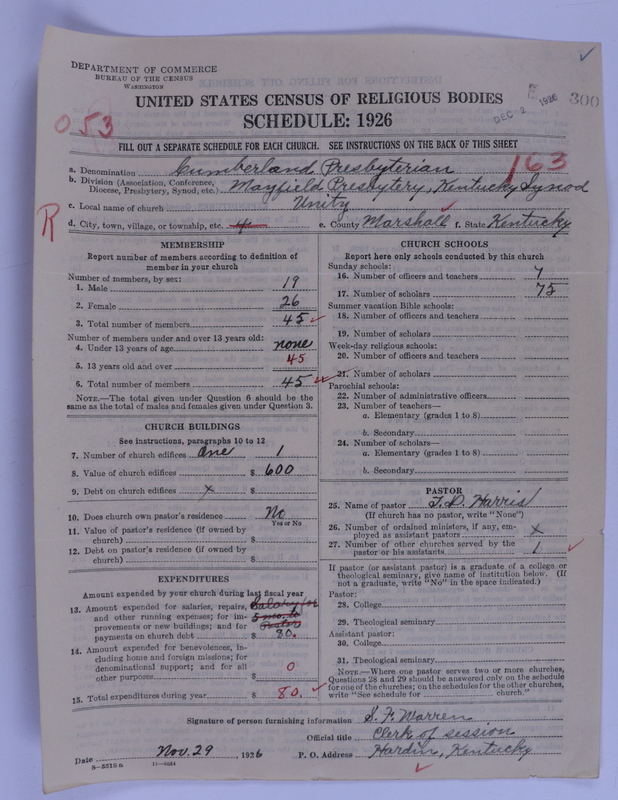 DEPARTMENT OF COMMERCE
BUREAU OF THE CENSUS
WASHINGTON
DEC 2 1926
300
UNITED STATES CENSUS OF RELIGIOUS BODIES
SCHEDULE: 1926
053
FILL OUT A SEPARATE SCHEDULE FOR EACH CHURCH. SEE INSTRUCTIONS ON THE BACK OF THIS SHEET
163
a. Denomination Cumberland Presbyterian
b. Division (Association, Conference, Diocese, Presbytery, Synod, etc.) Mayfield Presbytery, Kentucky Synod
c. Local name of church Unity
R
d. City, town, village, or township, etc. e. County Marshall f. State Kentucky
MEMBERSHIP
Report number of members according to definition of
member in your church
Number of members, by sex:
1. Male 19
2. Female 26
3. Total number of members 45
Number of members under and over 13 years old:
4. Under 13 years of age none
5. 13 years old and over 45
6. Total number of members 45
NOTE.—The total given under Question 6 should be the
same as the total of males and females given under Question 3.
CHURCH BUILDINGS
See instructions, paragraphs 10 to 12
7. Number of church edifices One 1
8. Value of church edifices $ 600
9. Debt on church edifices x $
10. Does church own pastor's residence No
Yes or No
11. Value of pastor's residence (if owned by
church) $
12. Debt on pastor's residence (if owned by
church) $
EXPENDITURES
Amount expended by your church during last fiscal year
13. Amount expended for salaries, repairs, Salary for
and other running expenses; for im- 5 mo. to
provements or new buildings; and for Pastor
payments on church debt $ 80.
14. Amount expended for benevolences, in-
cluding home and foreign missions; for
denominational support; and for all
other purposes $ 0
15. Total expenditures during year $ 80.
CHURCH SCHOOLS
Report here only schools conducted by this church
Sunday schools:
16. Number of officers and teachers 7
17. Number of scholars 75
Summer vacation Bible schools:
18. Number of officers and teachers
19. Number of scholars
Week-day religious schools:
20. Number of officers and teachers
21. Number of scholars
Parochial schools:
22. Number of administrative officers
23. Number of teachers—
a. Elementary (grades 1 to 8)
b. Secondary
24. Number of scholars—
a. Elementary (grades 1 to 8)
b. Secondary
PASTOR
25. Name of pastor Harris
(If church has no pastor, write "None")
26. Number of ordained ministers, if any, em-
ployed as assistant pastors x
27. Number of other churches served by the
pastor or his assistants 1
If pastor (or assistant pastor) is a graduate of a college or
theological seminary, give name of institution below. (If
not a graduate, write "No" in the space indicated.)
Pastor:
28. College
29. Theological seminary
Assistant pastor:
30. College
31. Theological seminary
NOTE.—Where one pastor serves two or more churches,
Questions 28 and 29 should be answered only on the schedule
for one of the churches; on the schedules for the other churches,
write "See schedule for church."
Signature of person furnishing information S. F. Warren
Official title Clerk of session
Date Nov. 29, 1926 P. O. Address Hardin, Kentucky
8-5516a 11-9034